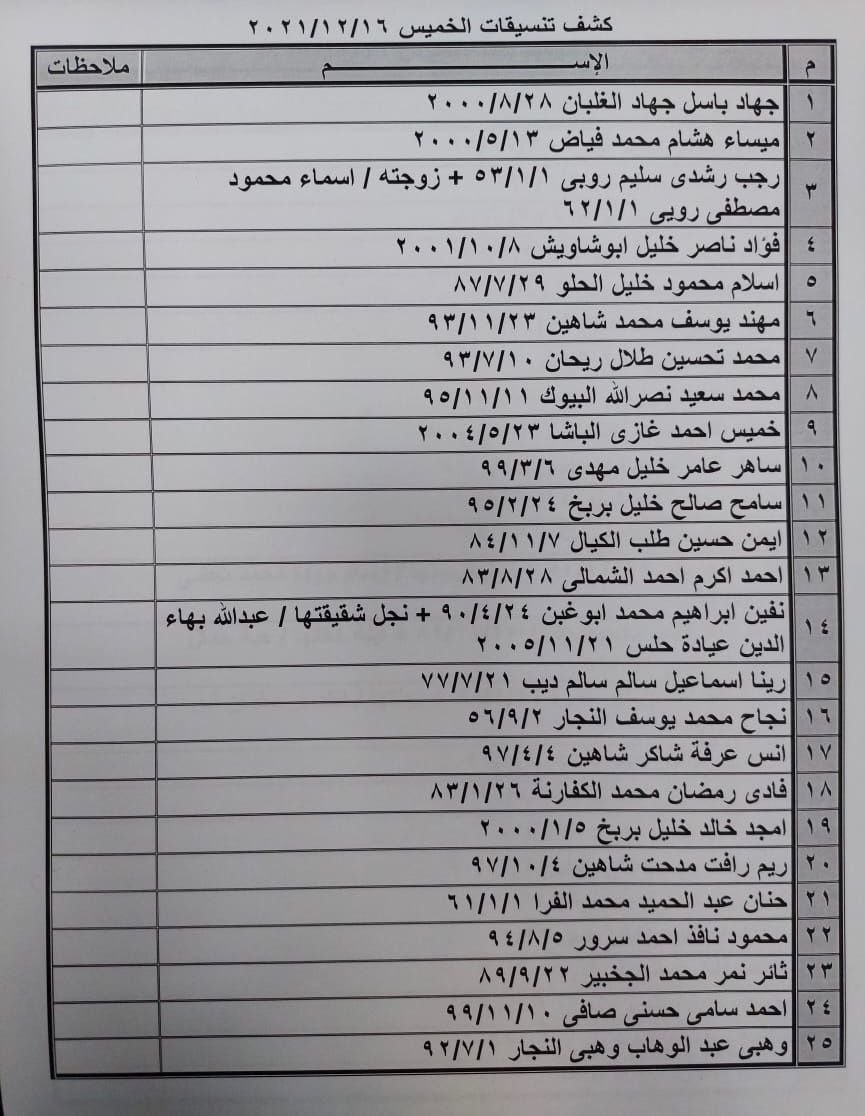 كشف تنسيقات الخميس ٢٠٢١/١٢/١٦
م الإســـــــــم ملاحظات
١ جهاد باسل جهاد الغلبان ٢٠٠٠/٨/٢٨
٢ ميساء هشام محمد فياض ٢٠٠٠/٥/١٣
٣ رجب رشدى سليم روبى ٥٣/١/١ + زوجته / اسماء محمود
مصطفى روبى ٦٢/١/١
٤ فؤاد ناصر خليل ابوشاويش ٢٠٠١/١٠/٨
٥ اسلام محمود خليل الحلو ٨٧/٧/٢٩
٦ مهند يوسف محمد شاهين ٩٣/١١/٢٣
٧ محمد تحسين طلال ريحان ٩٣/٧/١٠
٨ محمد سعيد نصرالله البيوك ٩٥/١١/١١
٩ خميس احمد غازى الباشا ٢٠٠٤/٥/٢٣
١٠ ساهر عامر خليل مهدى ٩٩/٣/٦
١١ سامح صالح خليل بربخ ٩٥/٢/٢٤
١٢ ايمن حسين طلب الكيال ٨٤/١١/٧
١٣ احمد اكرم احمد الشمالى ٨٣/٨/٢٨
١٤ نفين ابراهيم محمد ابوغبن ٩٠/٤/٢٤ + نجل شقيقتها / عبدالله بهاء
الدين عيادة حلس ٢٠٠٥/١١/٢١
١٥ رينا اسماعيل سالم سالم ديب ٧٧/٧/٢١
١٦ نجاح محمد يوسف النجار ٥٦/٩/٢
١٧ انس عرفة شاكر شاهين ٩٧/٤/٤
١٨ فادى رمضان محمد الكفارنة ٨٣/١/٢٦
١٩ امجد خالد خليل بربخ ٢٠٠٠/١/٥
٢٠ ريم رافت مدحت شاهين ٩٧/١٠/٤
٢١ حنان عبد الحميد محمد الفرا ٦١/١/١
٢٢ محمود نافذ احمد سرور ٩٤/٨/٥
٢٣ ثائر نمر محمد الجخبير ٨٩/٩/٢٢
٢٤ احمد سامى حسنى صافى ٩٩/١١/١٠
٢٥ وهبى عبد الوهاب وهبى النجار ٩٢/٧/١